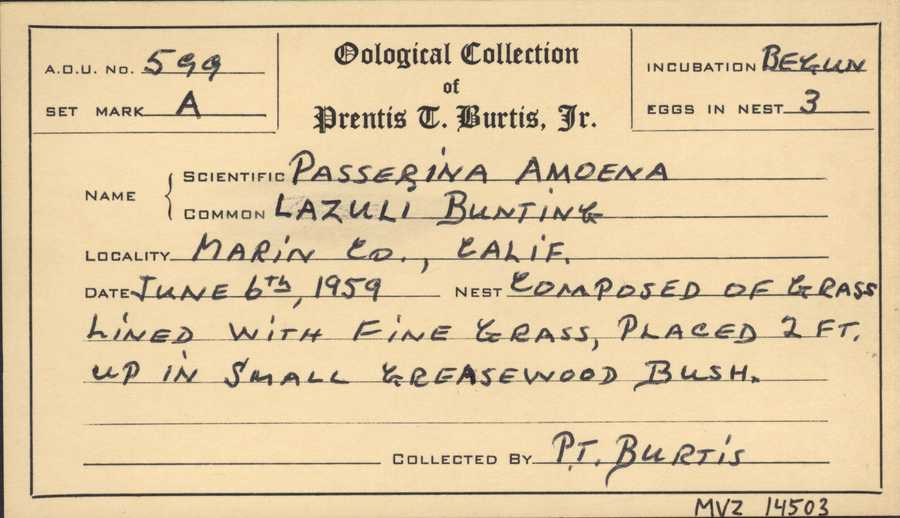 A.O.U. No. 599
Set Mark A
Oological Collection
of
Prentis T. Burtis, Jr.
Incubation Begun
Eggs in Nest 3
Name
Scientific Passerina Amoena
Common Lazuli Bunting
Locality Marin Co., Calif.
Date June 6th, 1959 Nest Composed of Grass
Lined with Fine Grass, Placed 2 Ft.
up in Small Greasewood Bush.
Collected By P.T. Burtis
MVZ 14503